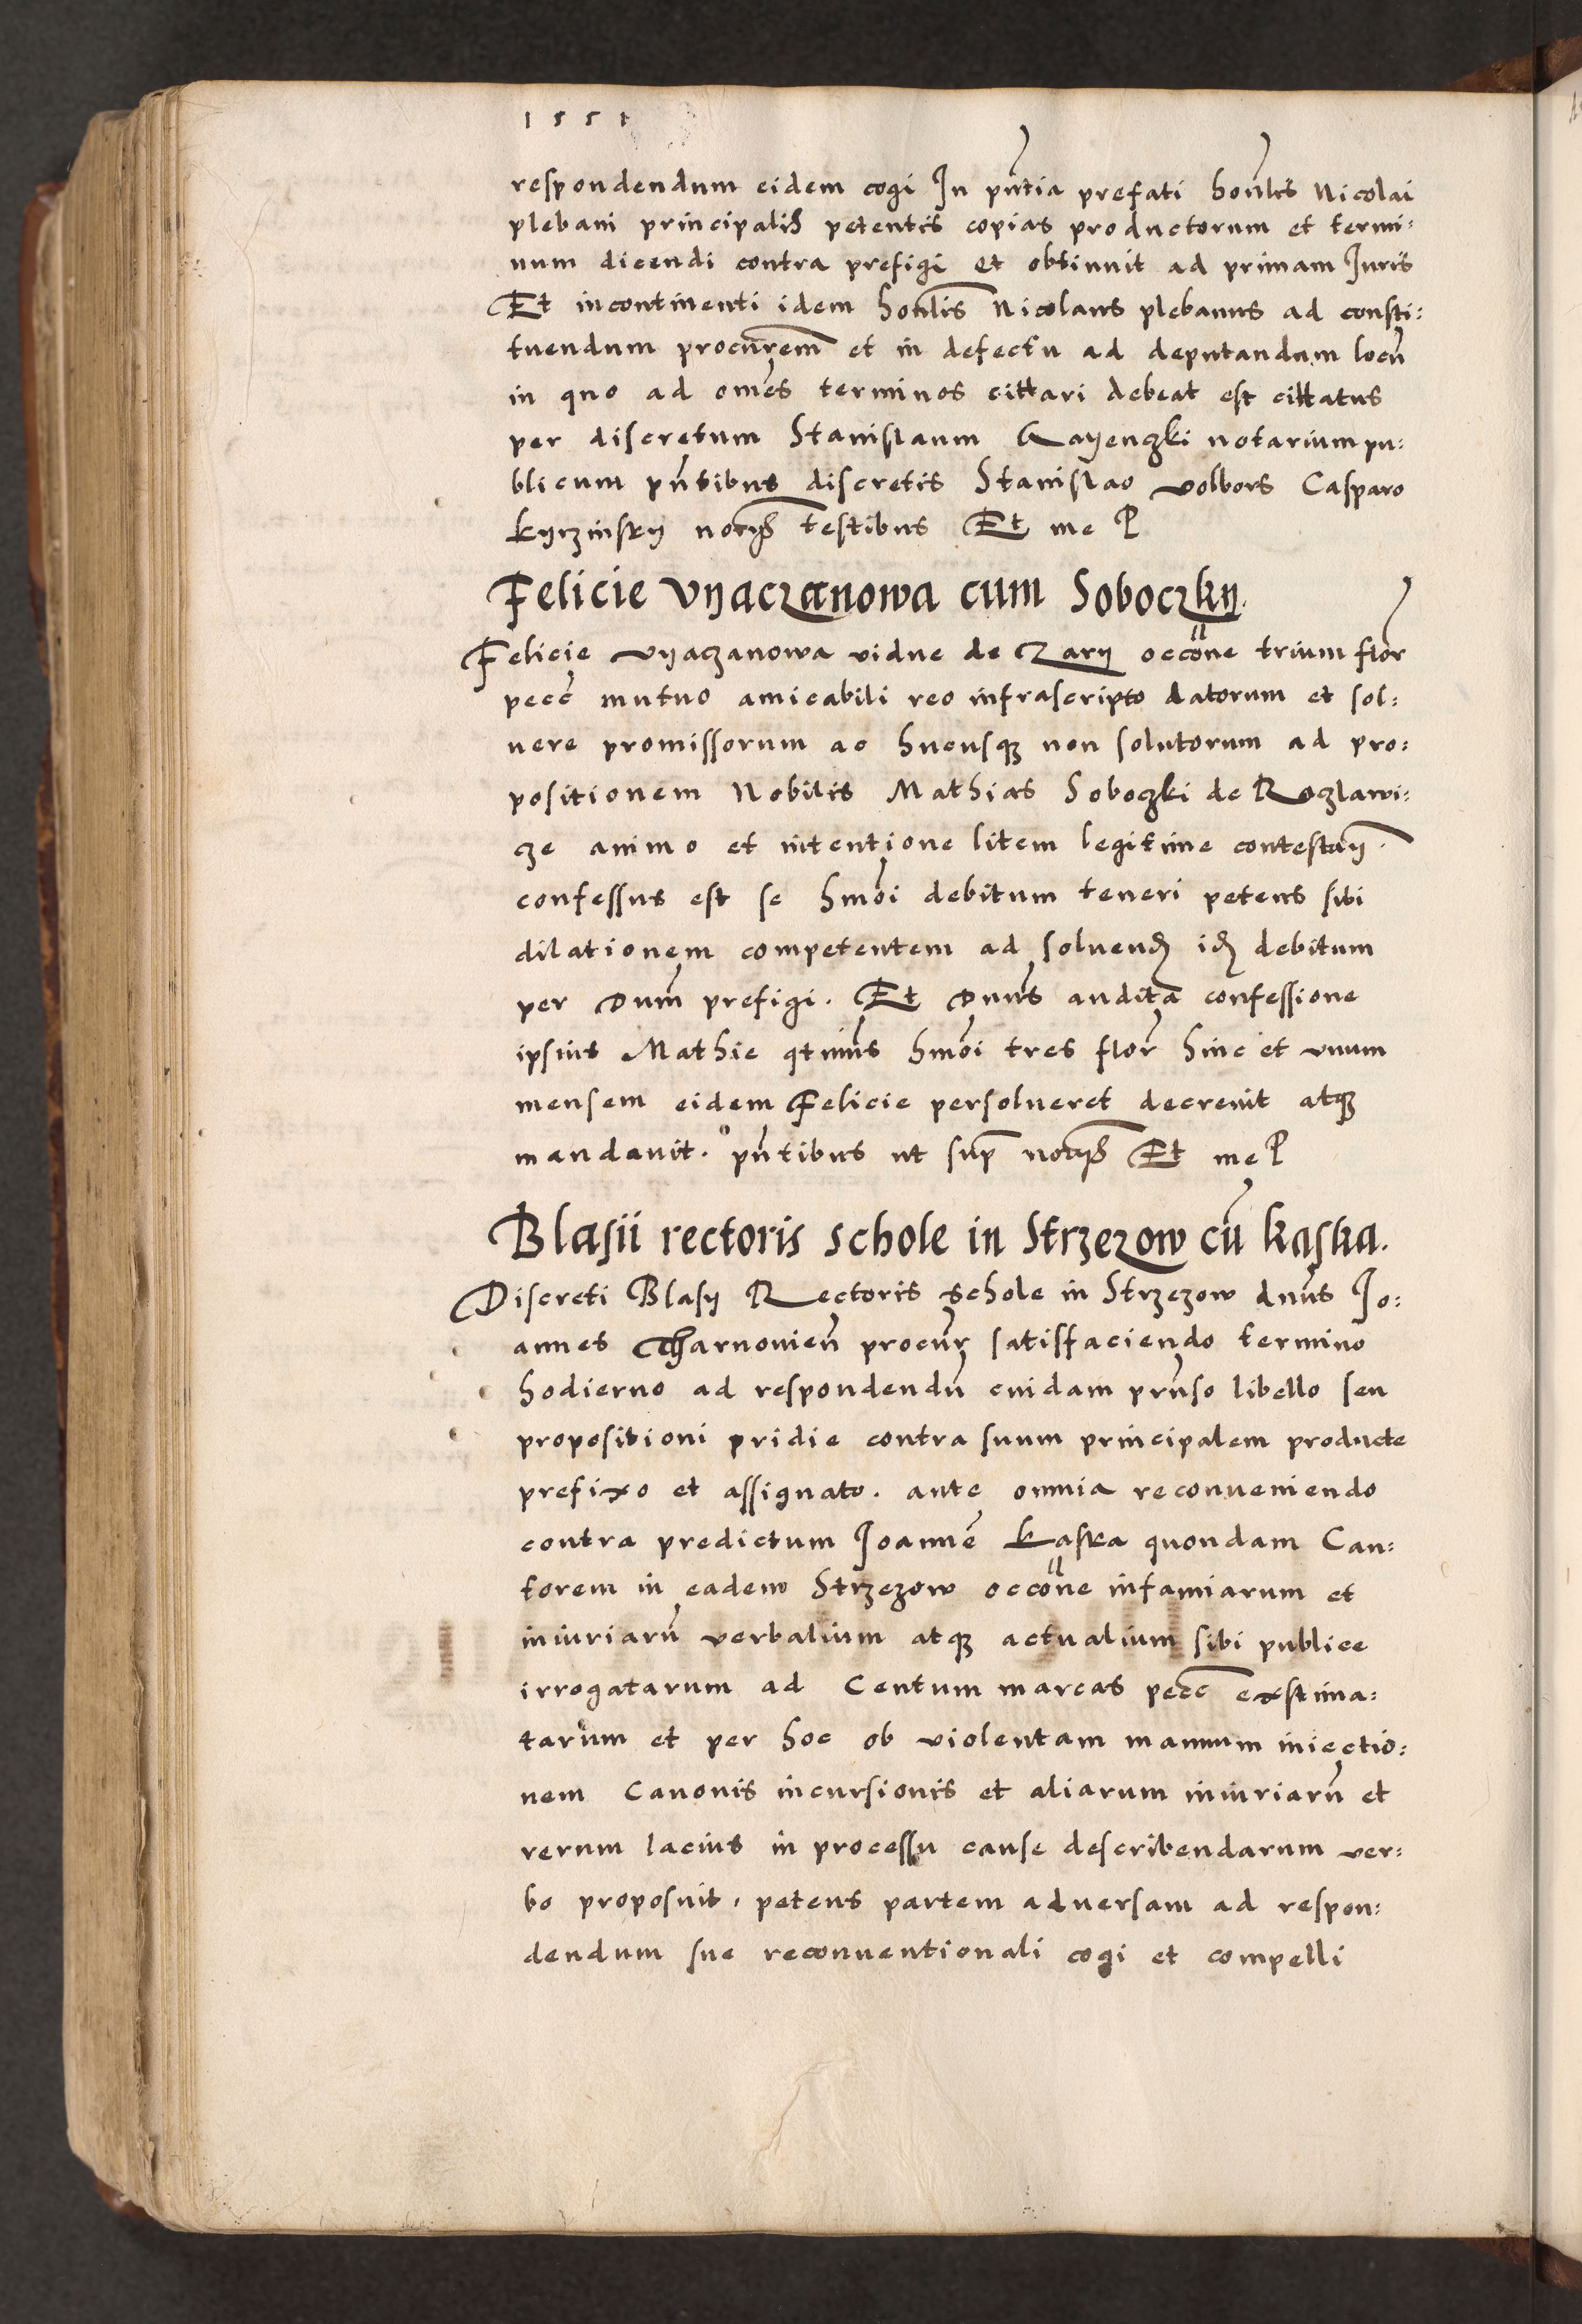 1551
respondendum eidem cogi In pn̄tia prefati hon̄lis Nicolai
plebani principalis petentis copias productorum et termi:
num dicendi contra prefigi et obtinuit ad primam Iuris
Et incontinenti idem hon̄lis Nicolaus plebanus ad consti:
tuendum procurem̄ et in defectu ad deputandum locū
in quo ad om̄es terminos cittari debeat est cittatus
per discretum Stanislaum Gayenczki notarium pu:
blicum pn̄tibus discretis Stanislao volbors Casparo
kyrzinsky testibus Et me P
Felicie vyaczanowa cum Soboczky.
Felicie vyaczanowa vidue de Zary occōne trium flor
pecc̄ mutuo amicabili reo infrascripto datorum et sol:
uere promissorum ac hucusqȝ non solutorum ad pro:
positionem Nobilis Mathias Soboczki de Roczlawi:
cze animo et intentione litem legitime
confessus est se hmōi debitum teneri petens sibi
dilationem competentem ad soluend iđ debitum
per Dn̄m prefigi. Et Dn̄us audita confessione
ipsius Mathie qtin̄us hmōi tres flor̄ hinc et vnum
mensem eidem Felicie persolueret decreuit atqȝ
mandauit. pn̄tibus ut sup̄ Et me P
Blasii rectoris schole in Strzezow cū kaska.
Discreti Blasy Rectoris schole in Strzezow dn̄us Io:
annes Tharnouien̄ procur̄ satisfaciendo termino
hodierno ad respondendū cuidam pren̄so libello seu
propositioni pridie contra suum principalem producte
prefixo et assignato. ante omnia reconueniendo
contra predictum Ioannē kaska quondam Can:
torem in eadem Strzezow occōne infamiarum et
iniuriarū verbalium atqȝ actualium sibi publice
irrogatarum ad Centum marcas pecc̄ exstima:
tarum et per hoc ob violentam manuum iniectio:
nem Canonis incursionis et aliarum iniuriarū et
rerum lacius in processu cause describendarum ver:
bo proposuit, petens partem aduersam ad respon:
dendum sue reconuentionali cogi et compelli